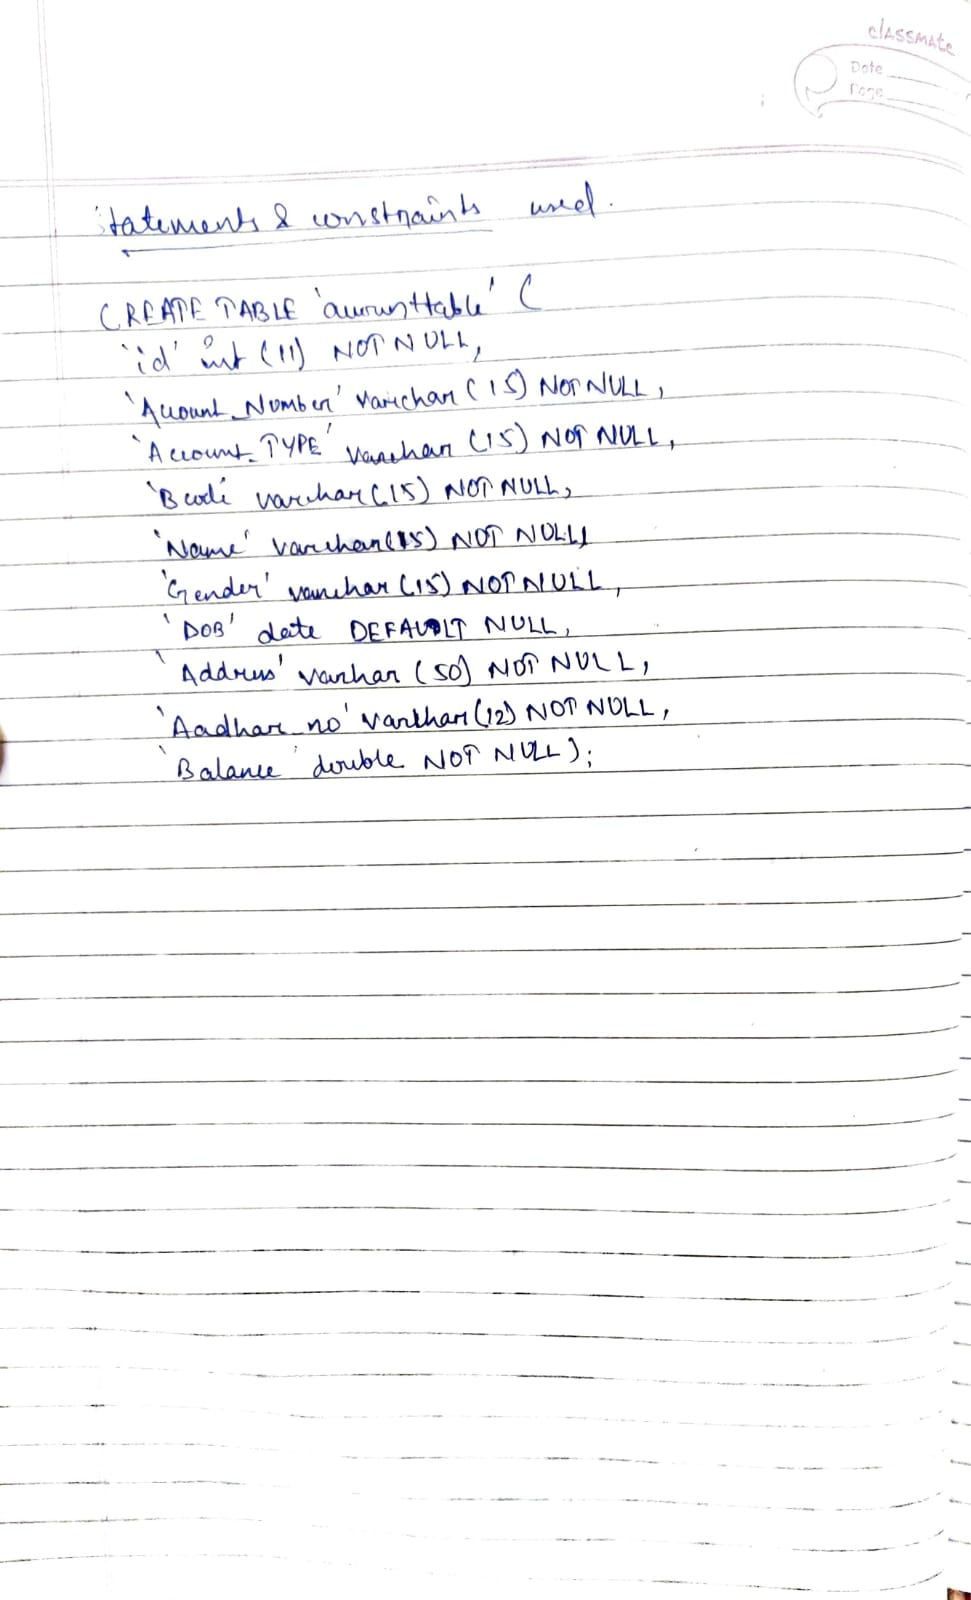 classmate
Date
Page
Statements & constraints used.
CREATE TABLE 'accounttable' (
'id' int (11) NOT NULL,
'Account_Number' varchar (15) NOT NULL,
'Account_TYPE' varchar (15) NOT NULL,
'Bcode' varchar (15) NOT NULL,
'Name' varchar (15) NOT NULL,
'Gender' varchar (15) NOT NULL,
'DOB' date DEFAULT NULL,
'Address' varchar (50) NOT NULL,
'Aadhar_no' varchar (12) NOT NULL,
'Balance' double NOT NULL);